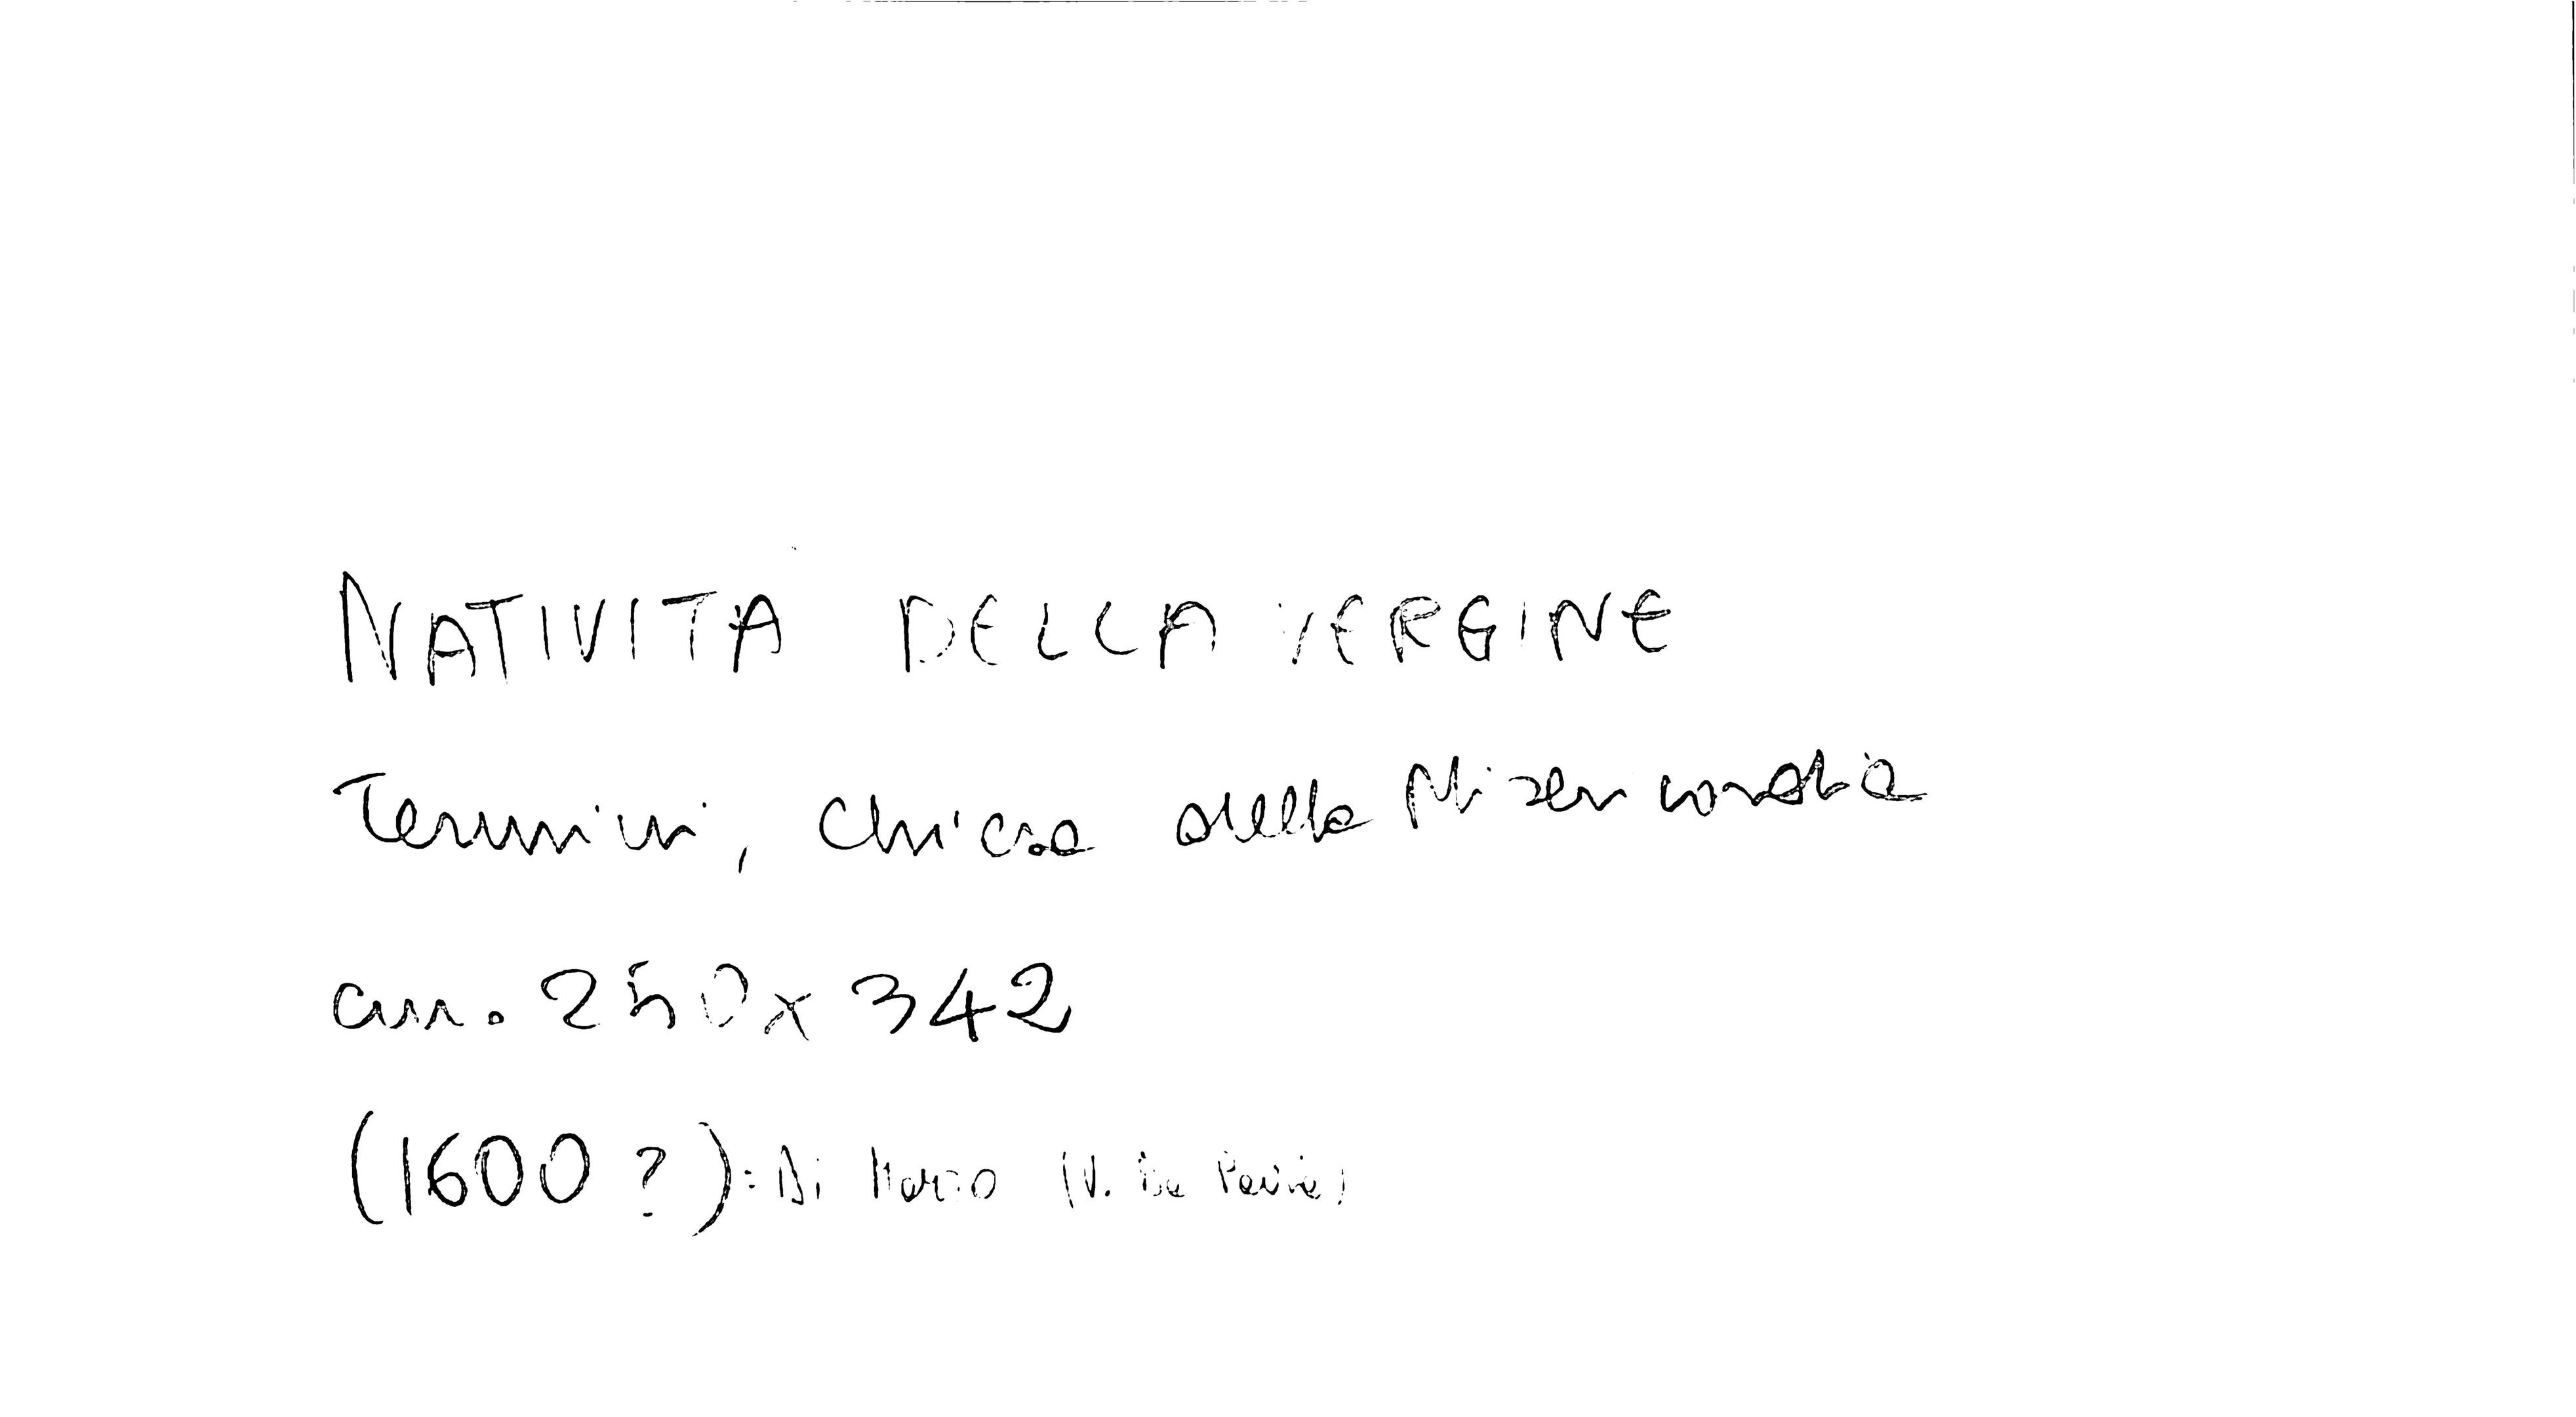 NATIVITÀ DELLA VERGINE
Termini, chiesa della Misericordia
cm. 250x342
(1600?): Di Marzo (V. Da Pavia)